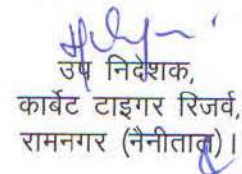 उप निदेशक,
कार्बेट टाइगर रिजर्व,
रामनगर (नैनीताल)।